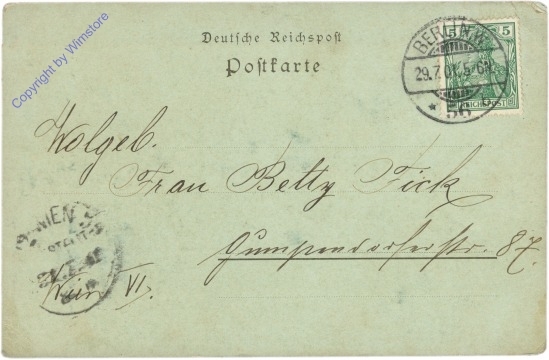 Copyright by Wimstore
Deutsche Reichspost
Postkarte
BERLIN.W.
29.7.01. 5-6N.
* 56
5
REICHSPOST
Wolgeb.
Frau Betty Fick
Gumpendorferstr. 87.
Wien VI.
WIEN